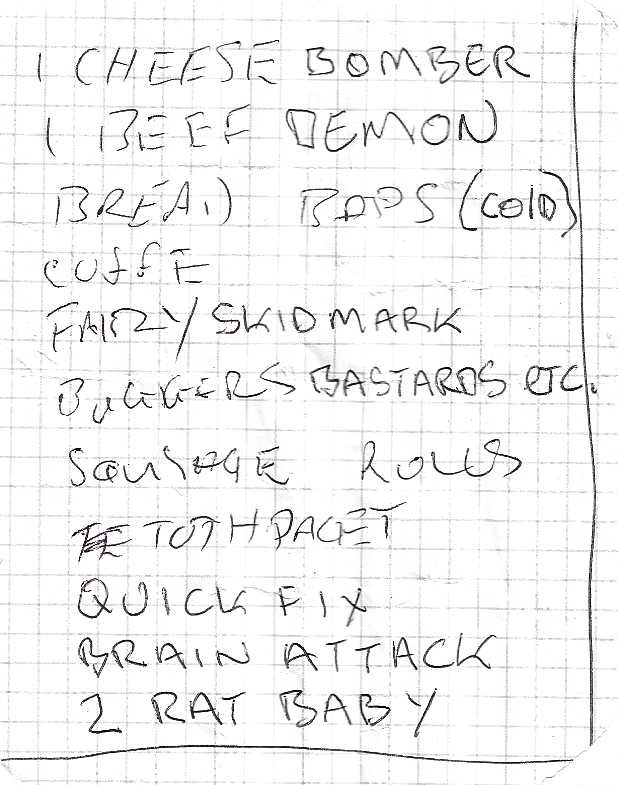 1 CHEESE BOMBER
1 BEEF DEMON
BREAD BAPS (COLD)
COFFE
FAIRY SKIDMARK
BUGGERS BASTARDS ETC.
SAUSAGE ROLLS
TOOTHPAGET
QUICK FIX
BRAIN ATTACK
2 RAT BABY